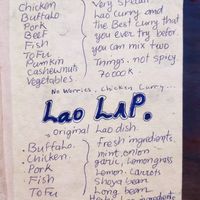 Chicken
Buffalo
Pork
Beef
Fish
ToFu
Pumkin
cashewnuts
Vegetables
Very special
Lao curry and
the Best curry that
you ever try before.
you can mix two
Things. not spicy.
70.000 K
No Worries, Chicken Curry...
Lao LAP.
original Lao dish.
. Buffalo.
. Chicken.
Pork
Fish
ToFu
fresh ingredients
mint, onion
garlic, Lemongrass
Lemon. carrots
Shoya bean
Long bean
ingredients